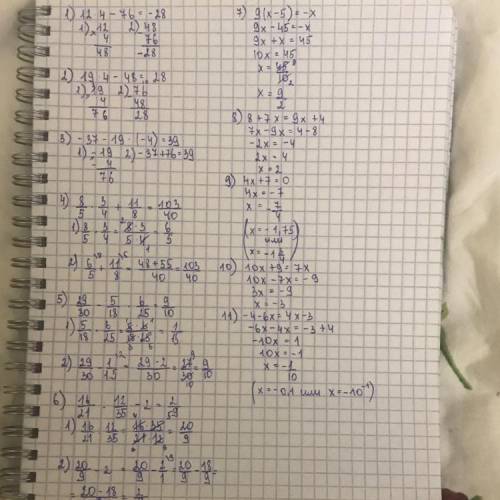 1) 12 · 4 - 76 = -28
1) × 12 2) 48
4 76
48 -28
2) 19 · 4 - 48 = 28
1) 19 2) 76
4 48
76 28
3) -37 - 19 · (-4) = 39
1) -19 2) -37+76=39
-4
76
4) 8/5 · 3/4 + 11/8 = 103/40
1) 8/5 · 3/4 = 8·3/5·4 = 6/5
2) 6/5 + 11/8 = 48+55/40 = 103/40
5) 29/30 - 5/18 · 6/25 = 9/10
1) 5/18 · 6/25 = 5·6/18·25 = 1/15
2) 29/30 - 1/15 = 29-2/30 = 27/30 = 9/10
6) 16/21 : 12/35 - 2 = 2/9
1) 16/21 : 12/35 = 16·35/21·12 = 20/9
2) 20/9 - 2 = 20/9 - 2/1 = 20/9 - 18/9 =
= 20-18/9 = 2/9
7) 9(x-5) = -x
9x - 45 = -x
9x + x = 45
10x = 45
x = 45/10
x = 9/2
8) 8 + 7x = 9x + 4
7x - 9x = 4 - 8
-2x = -4
2x = 4
x = 2
9) 4x + 7 = 0
4x = -7
x = -7/4
(x = -1,75
или
x = -1 3/4)
10) 10x + 9 = 7x
10x - 7x = -9
3x = -9
x = -3
11) -4 - 6x = 4x - 3
-6x - 4x = -3 + 4
-10x = 1
10x = -1
x = -1/10
(x = -0,1 или x = -10⁻¹)